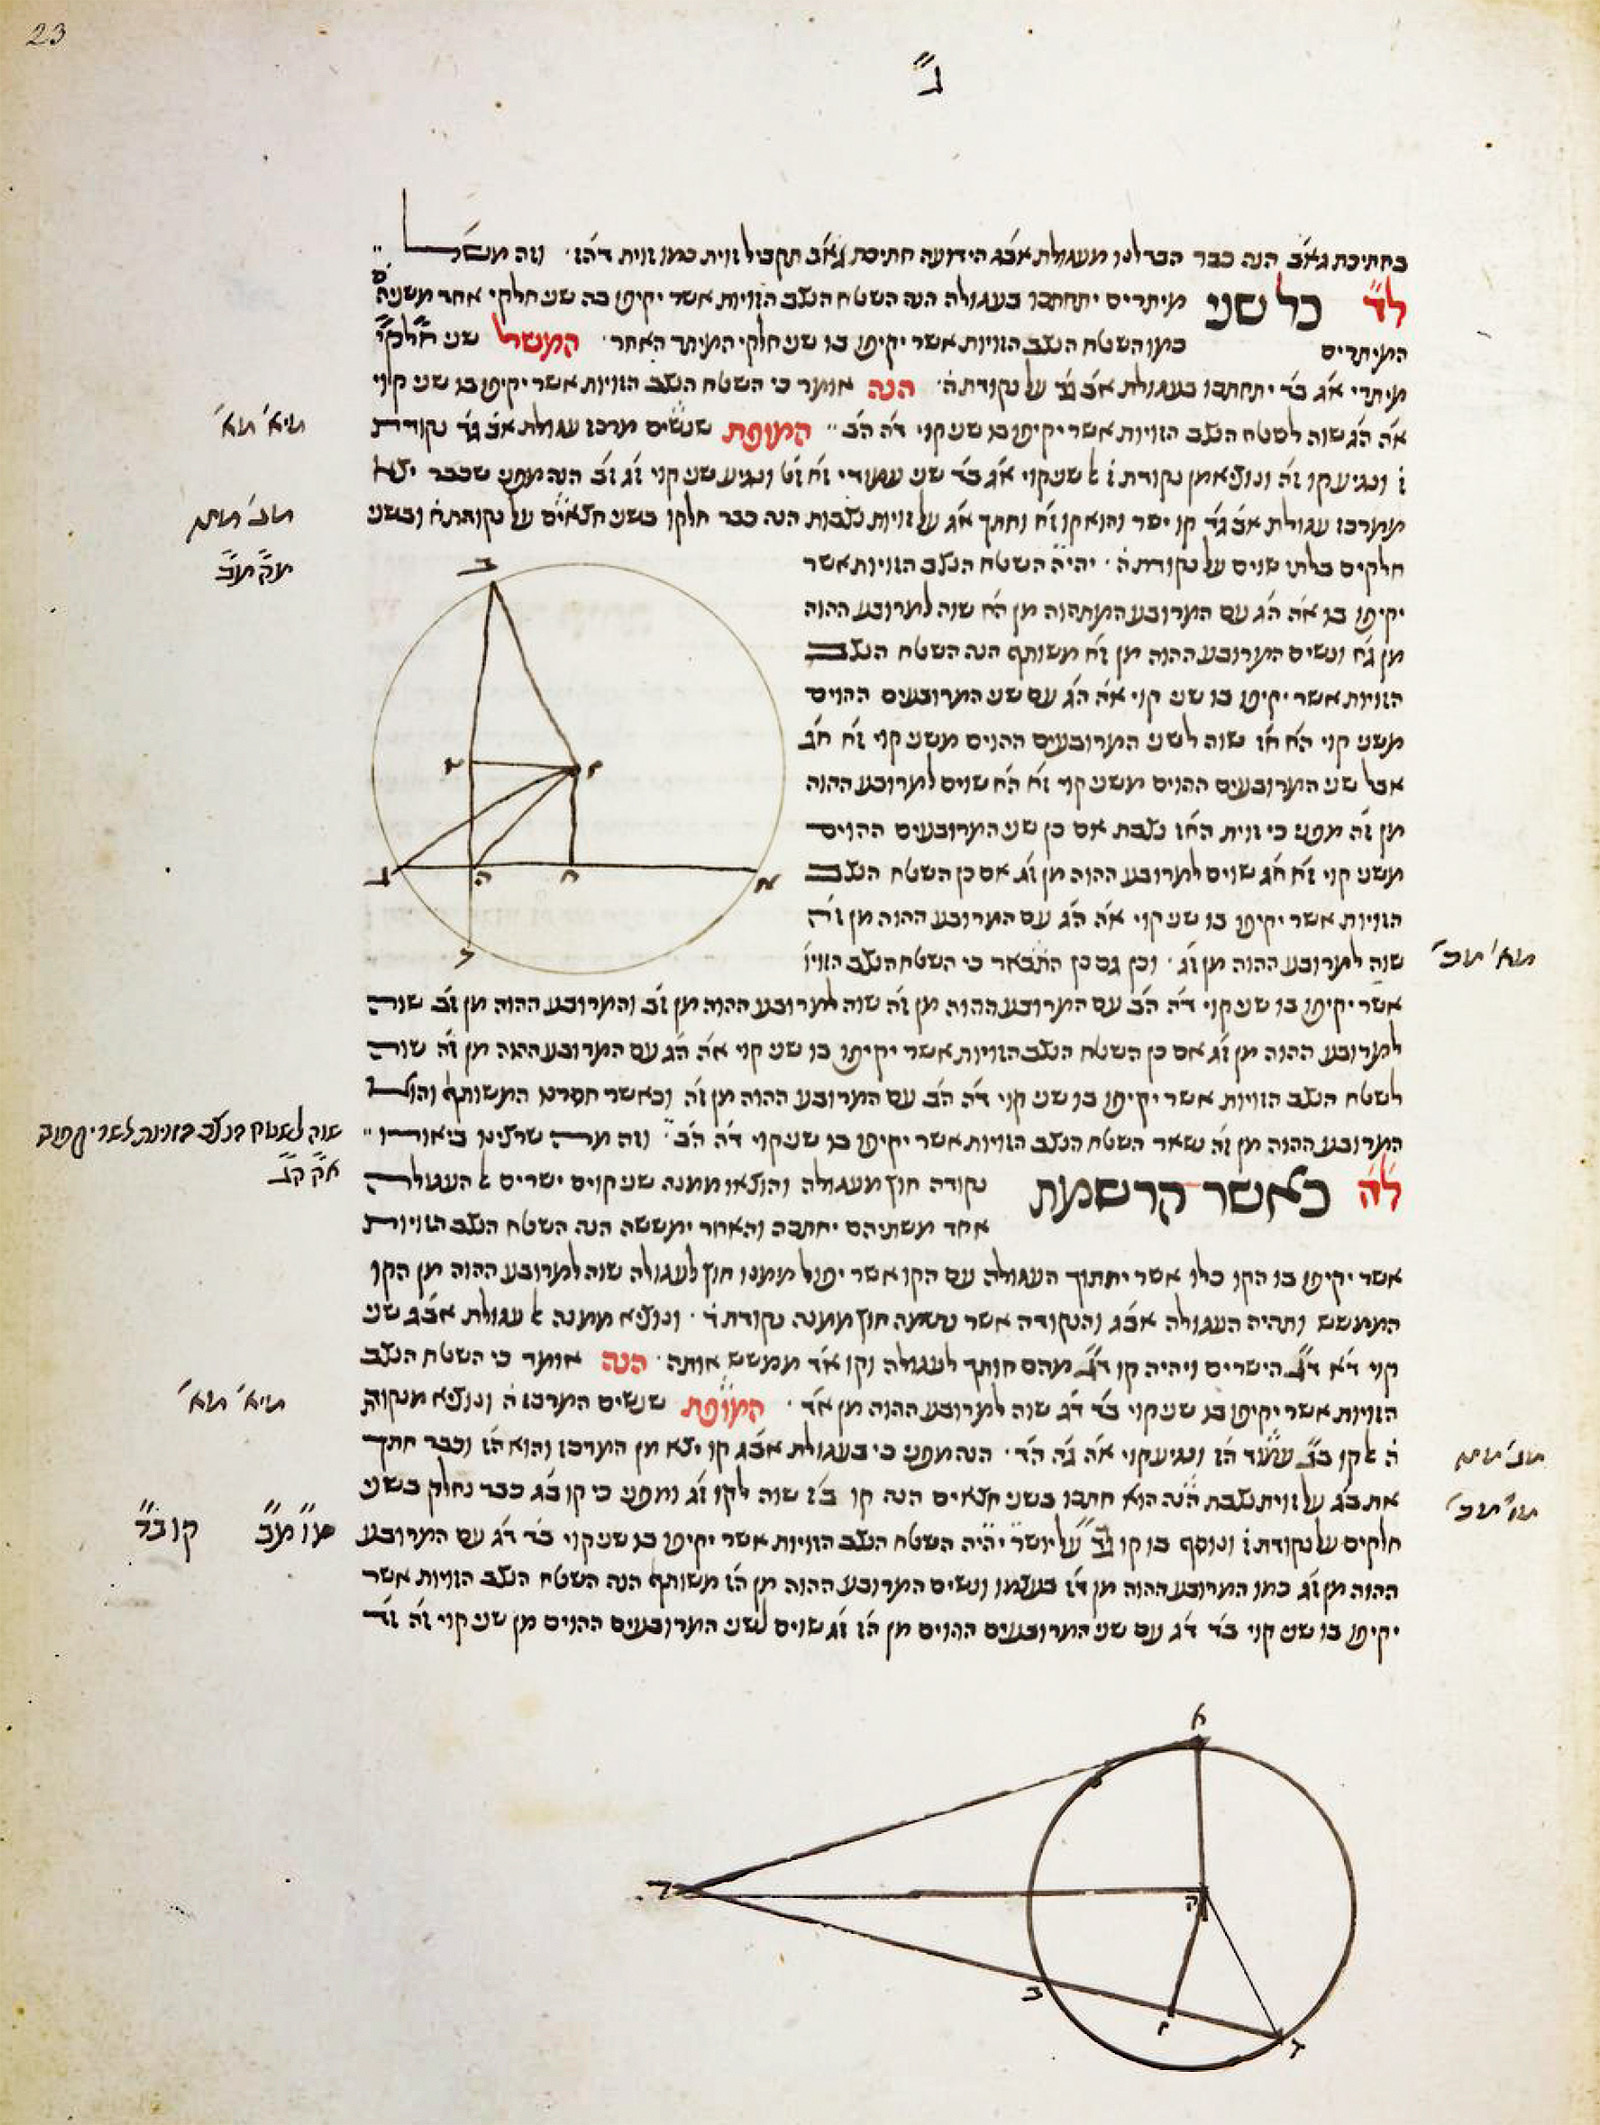 23
ג"
בחתיכת גא֗ב הנה כבר הבדלנו מעגולת אב֗ג הידועה חתיכת גא֗ב תקביל זוית כמו זוית דה֗ז · וזה מש֗ל
לד֗ כל שני מיתרים יתחתכו בעגולה הנה השטח הנצב הזויות אשר יקיפו בה שני חלקי אחד משני
המיתרים כמו השטח הנצב הזויות אשר יקיפו בו שני חלקי המיתר האחר · המשל שני
מיתרי א֗ג ב֗ד יתחתכו בעגולת אב֗ג֗ד על נקודת ה֗ · הנה אומר כי השטח הנצב הזויות אשר יקיפו בו שני קוי
א֗ה ה֗ג שוה לשטח הנצב הזויות אשר יקיפו בו שני קוי ד֗ה ה֗ב " המופת שנשים מרכז עגולת אב֗ג֗ד נקודת
ז֗ ונגיע קו ז֗ה ונוציא מן נקודת ז֗ אל שני קוי א֗ג ב֗ד שני עמודי ז֗ח ז֗ט ונגיע שני קוי ז֗ג ז֗ב הנה מפני שכבר יצא
ממרכז עגולת אב֗ג֗ד קו ישר והוא קו ז֗ח וחתך א֗ג על זויות נצבות הנה כבר חלקו בשני חצאים על נקודת ח֗ ובשני
חלקים בלתי שוים על נקודת ה֗ · יהיה השטח הנצב הזויות אשר
יקיפו בו א֗ה ה֗ג עם המרובע המתהוה מן ה֗ח שוה למרובע ההוה
מן ג֗ח ונשים המרובע ההוה מן ז֗ח משותף הנה השטח הנצב
הזויות אשר יקיפו בו שני קוי א֗ה ה֗ג עם שני המרובעים ההוים
משני קוי ה֗ח ח֗ז שוה לשני המרובעים ההוים משני קוי ז֗ח ח֗ג
אבל שני המרובעים ההוים משני קוי ז֗ח ה֗ח שוים למרובע ההוה
מן ז֗ה מפני כי זוית הח֗ז נצבת אם כן שני המרובעים ההוים
משני קוי ז֗ח ח֗ג שוים למרובע ההוה מן ז֗ג אם כן השטח הנצב
הזויות אשר יקיפו בו שני קוי א֗ה ה֗ג עם המרובע ההוה מן ז֗ה
שוה למרובע ההוה מן ז֗ג · וכן גם כן התבאר כי השטח הנצב הזויו
אשר יקיפו בו שני קוי ד֗ה ה֗ב עם המרובע ההוה מן ז֗ה שוה למרובע ההוה מן ז֗ב והמרובע ההוה מן ז֗ב שוה
למרובע ההוה מן ז֗ג אם כן השטח הנצב הזויות אשר יקיפו בו שני קוי א֗ה ה֗ג עם המרובע ההוה מן ז֗ה שוה
לשטח הנצב הזויות אשר יקיפו בו שני קוי ד֗ה ה֗ב עם המרובע ההוה מן ז֗ה וכאשר חסרנו המשותף והוא
המרובע ההוה מן ז֗ה נשאר השטח הנצב הזויות אשר יקיפו בו שני קוי ד֗ה ה֗ב · וזה מה שרצינו ביאורו "
לה֗ כאשר קרשמת נקודה חוץ מעגולה והוצאו ממנה שני קוים ישרים אל העגולה
אחד משתיהם יחתכה והאחר ימששה הנה השטח הנצב הזויות
אשר יקיפו בו הקו כלו אשר יחתוך העגולה עם הקו אשר יפול ממנו חוץ לעגולה שוה למרובע ההוה מן הקו
הממשש ותהיה העגולה אב֗ג והנקודה אשר נרשמה חוץ ממנה נקודת ד֗ · ונוציא ממנה אל עגולת אב֗ג שני
קוי ד֗א ד֗ג הישרים ויהיה קו ד֗ג מהם חותך לעגולה וקו א֗ד ממשש אותה · הנה אומר כי השטח הנצב
הזויות אשר יקיפו בו שני קוי ב֗ד ד֗ג שוה למרובע ההוה מן א֗ד · המופת שנשים המרכז ה֗ ונוציא מנקודת
ה֗ אל קו ב֗ג עמוד ה֗ז ונגיע קוי א֗ה ג֗ה ה֗ד · הנה מפני כי בעגולת אב֗ג קו יצא מן המרכז והוא ה֗ז וכבר חתך
את ב֗ג על זוית נצבת הנה הוא חתכו בשני חצאים הנה קו ב֗ז שוה לקו ז֗ג ומפני כי קו ב֗ג כבר נחלק בשני
חלקים על נקודת ז֗ ונוסף בו קו ב֗ד על יושר יהיה השטח הנצב הזויות אשר יקיפו בו שני קוי ב֗ד ד֗ג עם המרובע
ההוה מן ז֗ג כמו המרובע ההוה מן ד֗ז בעצמו ונשים המרובע ההוה מן ה֗ז משותף הנה השטח הנצב הזויות אשר
יקיפו בו שני קוי ב֗ד ד֗ג עם שני המרובעים ההוים מן ה֗ז ז֗ג שוים לשני המרובעים ההוים מן שני קוי ז֗ה ז֗ד
ב
ז
ג
ה
ח
א
ד
א
ד
ה
ב
ז